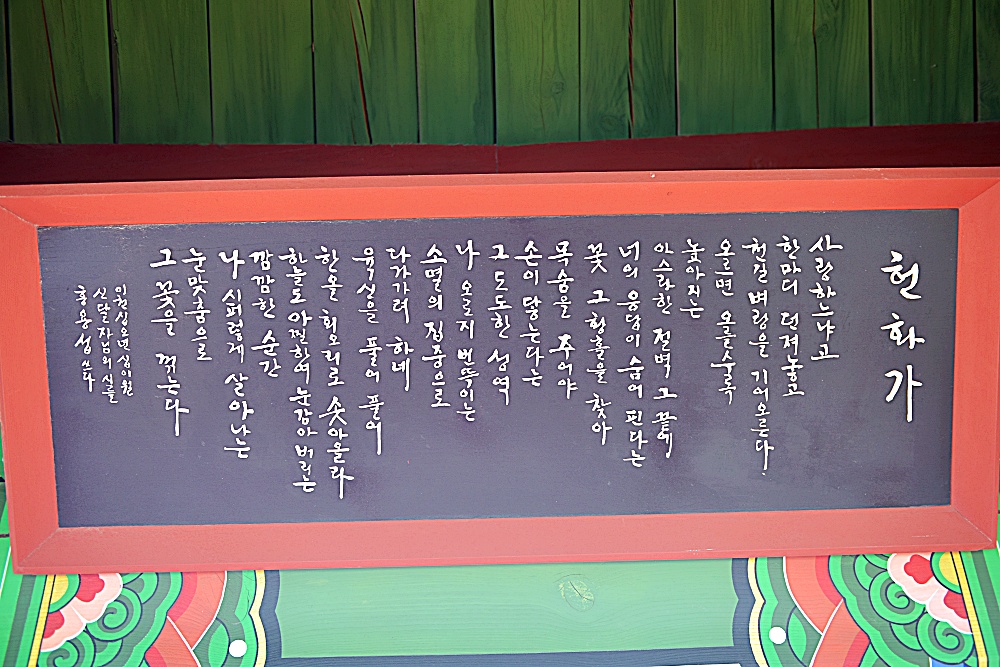 헌화가
사랑하느냐고
한마디 던져놓고
천길 벼랑을 기어오른다.
오르면 오를수록
높아지는
아스라한 절벽 그 끝에
너의 응답이 숨어 핀다는
꽃 그 황홀을 찾아
목숨을 주어야
손이 닿는다는
그 도도한 성역
나 오로지 번뜩이는
소멸의 집중으로
다가가려 하네
육신을 풀어 풀어
한올 회오리로 솟아올라
하늘도 아찔하여 눈감아버리는
깜깜한 순간
나 시퍼렇게 살아나는
눈맞춤으로
그 꽃을 꺾는다
이천십오년 십이월
신달자님의 시를
용섭 쓰다